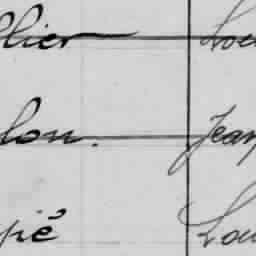 llier Lou
lon. Jean
pié Lou